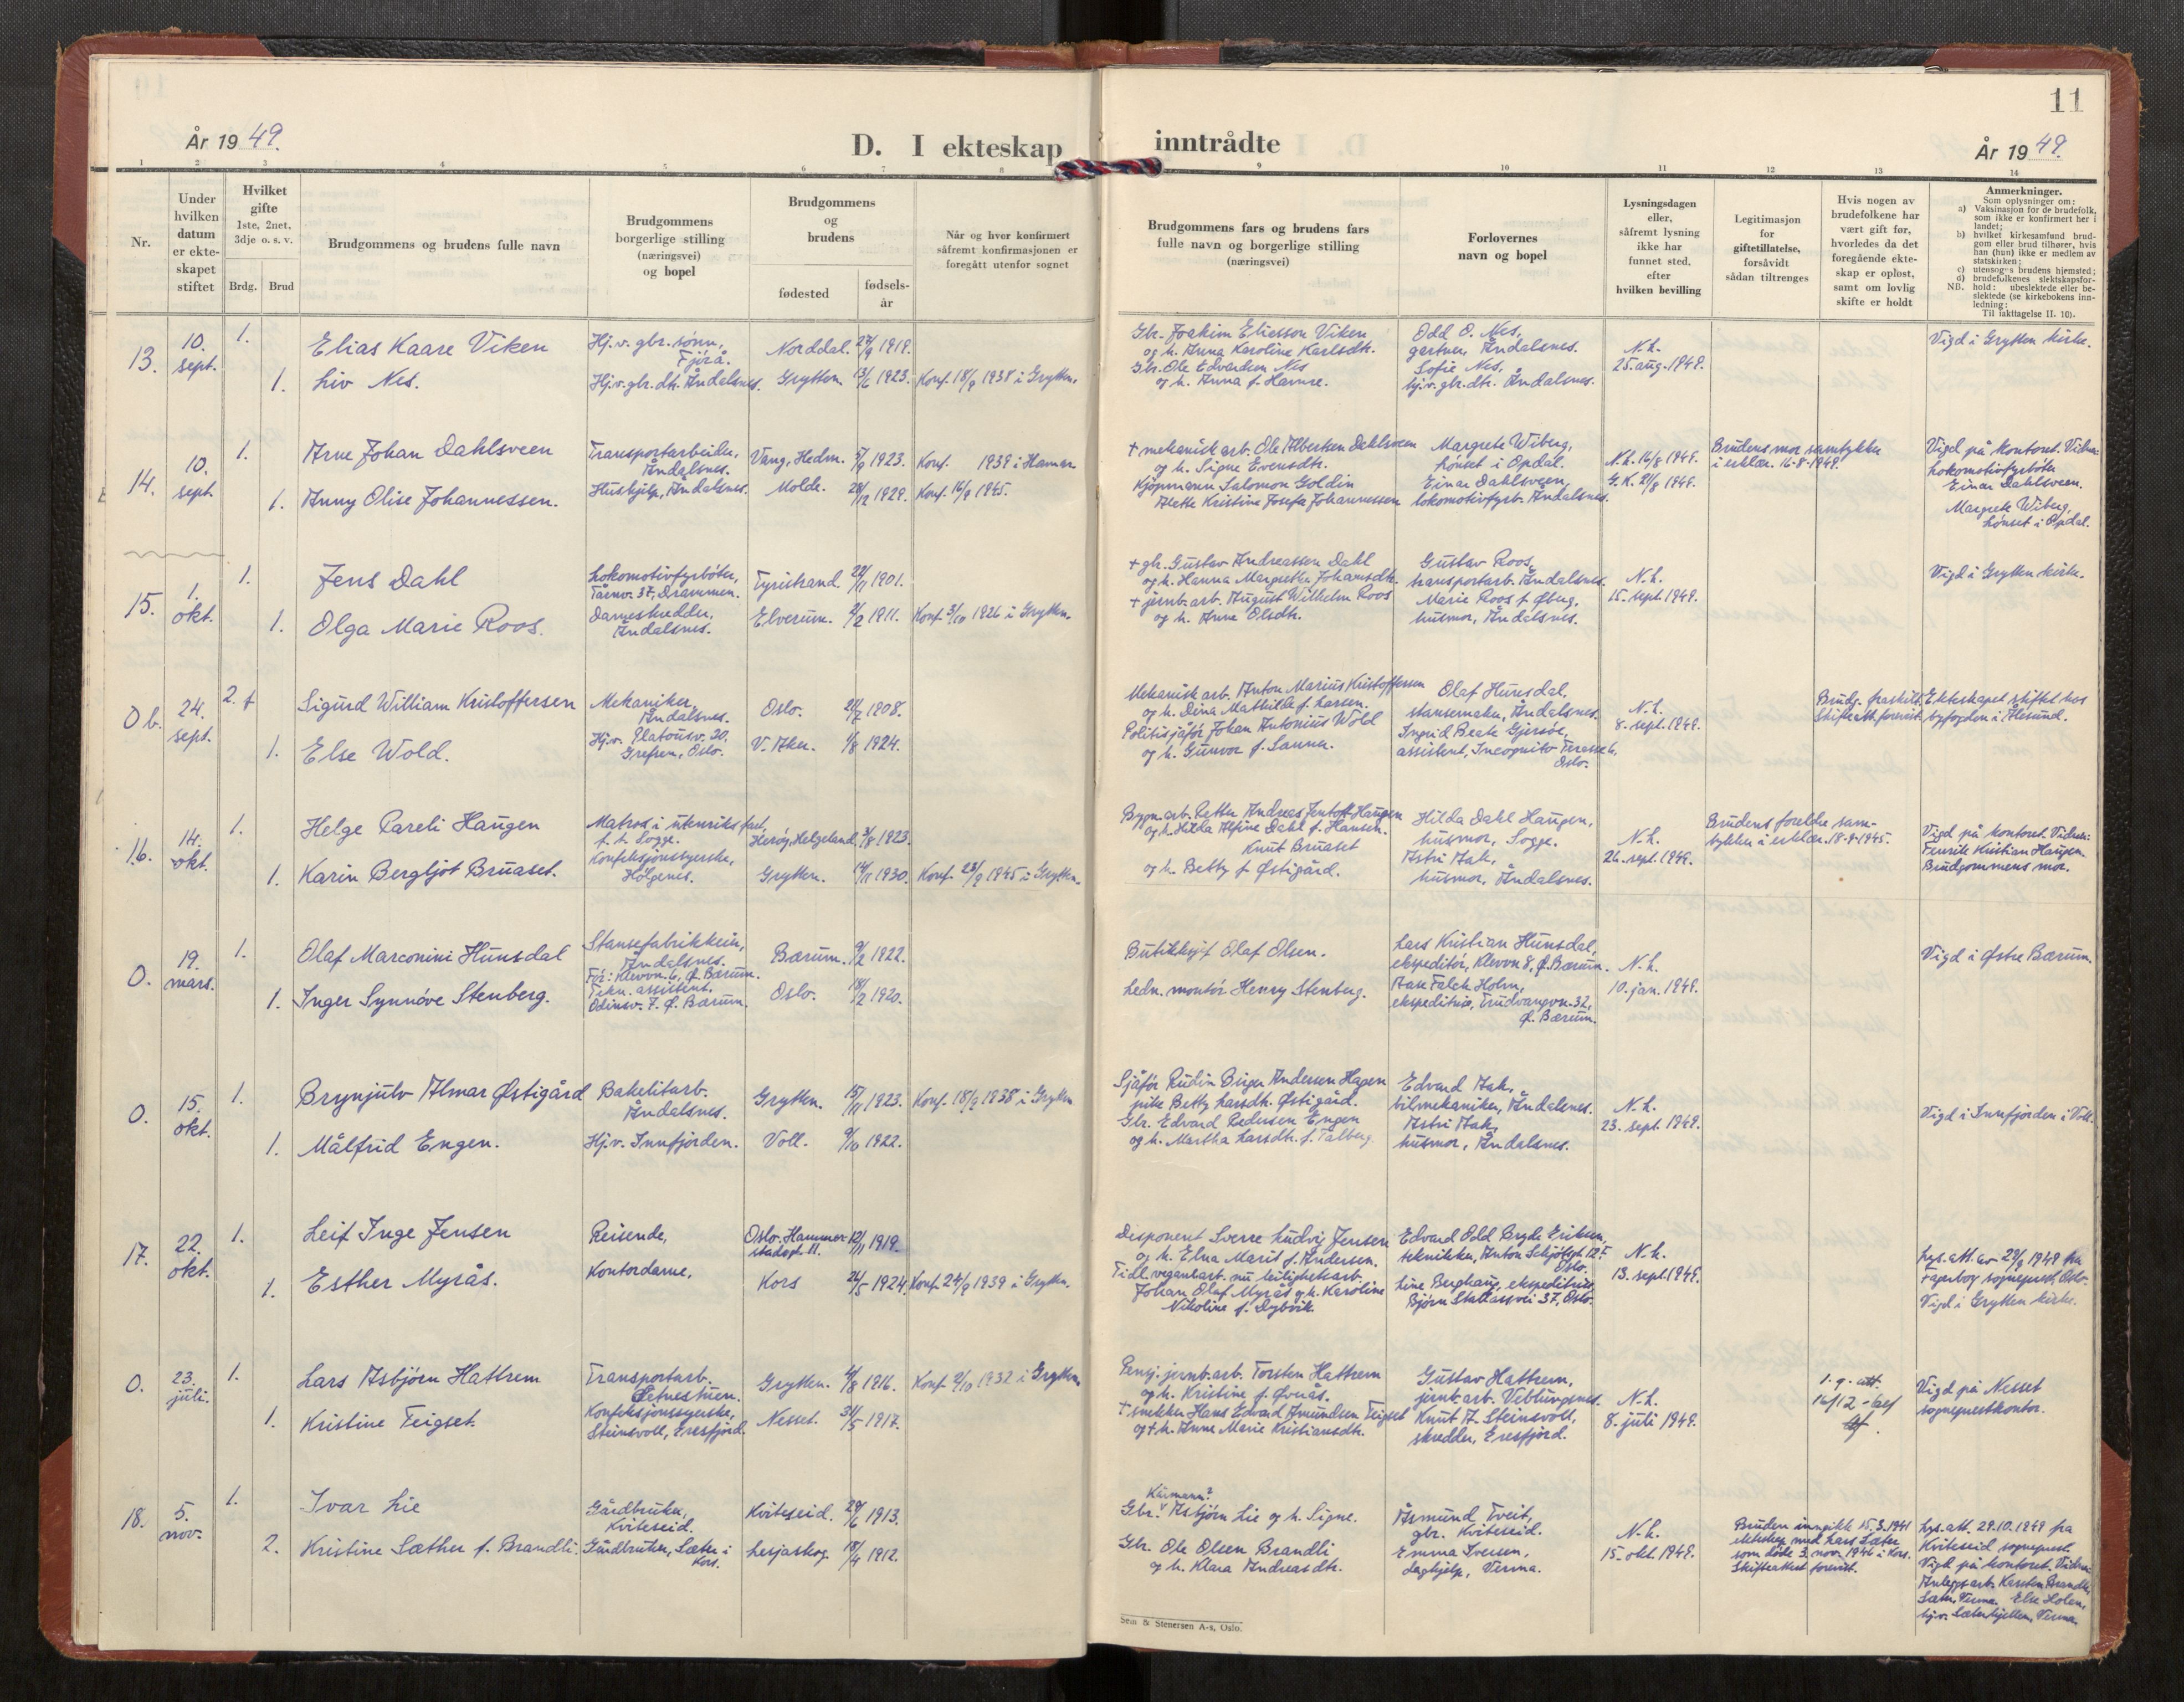 11
År 1949.
D. I ekteskap inntrådte
År 1949.
1 2 3 4 5 6 7 8 9 10 11 12 13 14
Nr.
Under hvilken datum er ekteskapet stiftet
Hvilket gifte 1ste, 2net, 3dje o. s. v.
Brdg. Brud
Brudgommens og brudens fulle navn
Brudgommens borgerlige stilling (næringsvei) og bopel
Brudgommens og brudens
fødested
fødselsår
Når og hvor konfirmert såfremt konfirmasjonen er foregått utenfor sognet
Brudgommens fars og brudens fars fulle navn og borgerlige stilling (næringsvei)
Forlovernes navn og bopel
Lysningsdagen eller, såfremt lysning ikke har funnet sted, efter hvilken bevilling
Legitimasjon for giftetillatelse, forsåvidt sådan tiltrenges
Hvis nogen av brudefolkene har vært gift før, hvorledes da det foregående ekteskap er opløst, samt om lovlig skifte er holdt
Anmerkninger.
Som oplysninger om:
a) Vaksinasjon for de brudefolk, som ikke er konfirmert her i landet;
b) hvilket kirkesamfund brudgom eller brud tilhører, hvis han (hun) ikke er medlem av statskirken;
c) utensogns brudens hjemsted;
d) brudefolkenes slektskapsforhold: ubeslektede eller beslektede (se kirkebokens innledning:
NB.
Til iakttagelse II. 10).
13. 10. sept. 1. Elias Kaare Viken
Hj.v. gbr. sønn, Fjørå.
Norddal. 27/9 1919.
Gbr. Joakim Eliesson Viken
og h. Anna Karoline Karlsdtr.
Odd O. Nes,
gartner, Åndalsnes.
N.k.
25. aug. 1949.
Vigd i Grytten kirke.
1. Liv Nes.
Hj.v. gbr. dtr. Åndalsnes.
Grytten. 13/6 1923. Konf. 18/9 1938 i Grytten.
Gbr. Ole Edvardsen Nes
og h. Anna f. Hamre.
Sofie Nes,
hj.v. gbr. dtr. Åndalsnes.
14. 10. sept. 1. Arne Johan Dahlsveen
Transportarbeider, Åndalsnes.
Vang, Hedm. 5/9 1923. Konf. 1939 i Hamar.
+ mekanisk arb. Ole Albertsen Dahlsveen
og h. Signe Evensdtr.
Margrete Wiberg,
Lønset i Opdal.
N.k. 16/8 1949.
G.K. 21/8 1949.
Brudens mor samtykke
i erklær. 16-8-1949.
Vigd på kontoret. Vidner:
Lokomotivfyrbøter
Einar Dahlsveen.
Margrete Wiberg,
Lønset i Opdal.
1. Anny Olise Johannessen.
Hushjelp, Åndalsnes.
Molde. 28/12 1929. Konf. 16/9 1945.
Kjøpmann Salomon Goldin
Alette Kristine Josefa Johannessen
Einar Dahlsveen,
lokomotivfyrb. Åndalsnes.
15. 1. okt. 1. Jens Dahl
Lokomotivfyrbøter,
Tårnv. 37, Drammen.
Tyristrand. 22/11 1901.
+ gbr. Gustav Andreassen Dahl
og h. Hanna Margrethe Johansdtr.
Gustav Roos,
transportarb. Åndalsnes.
N.k.
15. sept. 1949.
Vigd i Grytten kirke.
1. Olga Marie Roos.
Dameskredder,
Åndalsnes.
Elverum. 2/2 1911. Konf. 3/10 1926 i Grytten.
+ jernb.arb. August Wilhelm Roos
og h. Anne Olsdtr.
Marie Roos f. Øberg,
husmor, Åndalsnes.
Ob. 24. sept. 2. f Sigurd William Kristoffersen
Mekaniker,
Åndalsnes.
Oslo. 21/7 1908.
Mekanisk arb. Anton Marius Kristoffersen
og h. Dina Mathilde f. Larsen.
Olaf Hunsdal,
stansemaker, Åndalsnes.
N.k.
8. sept. 1949.
Brudg. fraskilt.
Skifteatt. forevist.
Ekteskapet skiftet hos
byfogden i Ålesund.
1. Else Wold.
Hj.v. Platousv. 30.
Grefsen, Oslo.
V. Aker. 1/8 1924.
Politisjåfør Johan Antonius Wold
og h. Gunvor f. Sanner.
Ingrid Beate Gjersøe,
assistent, Incognito Terasse 6,
Oslo.
16. 14. okt. 1. Helge Pareli Haugen
Matros i utenriks fart,
f.t. Sogge.
Herøy, Helgeland. 3/8 1923.
Bygn.arb. Petter Andreas Jentoft Haugen
og h. Hilda Alfine Dahl f. Hansen.
Hilda Dahl Haugen,
husmor, Sogge.
N.k.
26. sept. 1949.
Brudens foreldre sam-
tykke i erklær. 18-9-1945.
Vigd på kontoret. Vidner:
Fenrik Kristian Haugen.
Brudgommens mor.
1. Karin Bergljot Bruaset.
Konfeksjonssyerske,
Holgenes.
Grytten. 14/11 1930. Konf. 23/9 1945 i Grytten.
Knut Bruaset
og h. Betty f. Østigård.
Astri Aak,
husmor, Åndalsnes.
O. 19. mars. 1. Olaf Marconini Hunsdal
Stansefabrikkeier,
Åndalsnes.
Før: Klevvn. 6, Ø. Bærum.
Bærum. 9/2 1922.
Butikksjef Olaf Olsen.
Lars Kristian Hunsdal,
ekspeditør, Klevvn 8, Ø. Bærum.
N.k.
10. jan. 1949.
Vigd i Østre Bærum.
1. Inger Synnøve Stenberg.
Tekn. assistent.
Odinsv. 7. Ø. Bærum.
Oslo. 18/2 1920.
Ledn. montør Henry Stenberg.
Aase Falch Holm,
ekspeditrise, Trudvangvn. 32,
Ø. Bærum.
O. 15. okt. 1. Brynjulv Almar Østigård
Bakelitarb.
Åndalsnes.
Grytten. 15/11 1923. Konf. 18/9 1938 i Grytten
Sjåfør Rudin Birger Andersen Hagen
pike Betty Larsdtr. Østigård.
Edvard Aak,
bilmekaniker, Åndalsnes.
N.k.
23. sept. 1949.
Vigd i Innfjorden i Voll.
1. Målfrid Engen.
Hj.v. Innfjorden.
Voll. 9/10 1922.
Gbr. Edvard Pedersen Engen
og h. Martha Larsdtr. f. Talberg.
Astri Aak,
husmor, Åndalsnes.
17. 22. okt. 1. Leif Inge Jensen
Reisende,
Oslo. Hammer-
stadsgt. 11. 12/11 1919.
Disponent Sverre Ludvig Jensen
og h. Elna Marit f. Andersen.
Edvard Odd Bryde Eriksen,
tekniker, Anton Schjøtsgt. 12 F.
Oslo.
N.k.
13. sept. 1949.
Lys. att. av 29/9 1949 fra
Fagerborg sogneprest, Oslo.
Vigd i Grytten kirke.
1. Esther Myrås.
Kontordame,
Kors 26/5 1924. Konf. 24/9 1939 i Grytten.
Tidl. vegvokt.arb. nu leilighetsarb.
Johan Olaf Myrås og h. Karoline
Nikoline f. Dybvik.
Line Berghaug, ekspeditrise,
Bjørn Stallaresvei 37, Oslo.
O. 23. juli. 1. Lars Asbjørn Hattrem
Transportarb.
Setnesmoen.
Grytten. 4/8 1916. Konf. 2/10 1932 i Grytten
Pensj. jernb.arb. Torsten Hattrem
og h. Kristine f. Øvrås.
Gustav Hattrem,
jernb.arb. Veblungsnes.
N.k.
8. juli 1949.
Vigd på Nesset
sogneprestkontor.
1. Kristine Teigset.
Konfeksjonssyerske,
Steinsvoll, Eresfjord.
Nesset. 31/5 1917.
+ snekker Hans Edvard Amundsen Teigset
og + h. Anne Marie Kristiansdtr.
Knut A. Steinsvoll,
skredder, Eresfjord.
18. 5. nov. 1. Ivar Lie
Gårdbruker,
Kviteseid.
Kviteseid. 29/6 1913.
Kårmann?
Gbr. Asbjørn Lie og h. Signe.
Åsmund Tveit,
gbr. Kviteseid.
N.k.
15. okt. 1949.
Bruden inngikk 15.3.1941
ekteskap med Lars Sæter
som døde 3. nov. 1946 i Kors.
Skifteattest forevist.
Lys. att. 29.10.1949 fra
Kviteseid sogneprest.
Vigd på kontoret. Vidner:
Anleggsarb. Karsten Brandli,
Sæter, Verma. Else Holen,
hj.v. Sæterhjellen, Verma.
2. Kristine Sæther f. Brandli.
Gårdbruker, Sæter i
Kors.
Lesjaskog. 18/4 1912.
Gbr. Ole Olsen Brandli
og h. Klara Andreasdtr.
Emma Iversen,
daghjelp, Verma.
Sem & Stenersen A-s, Oslo.